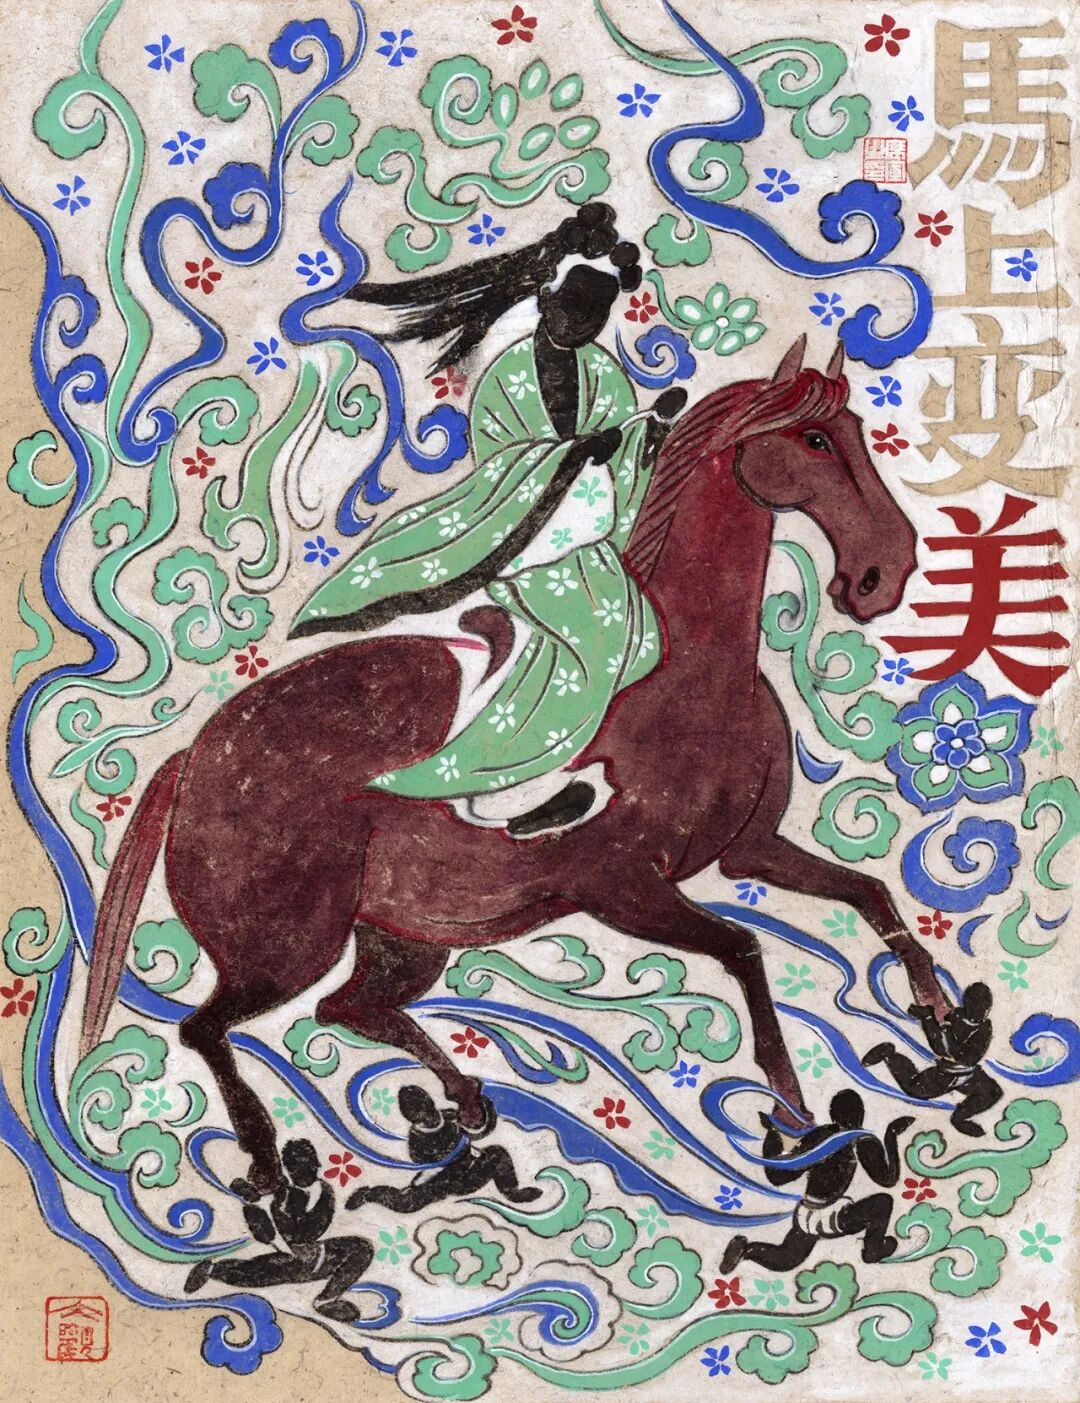 馬上变美